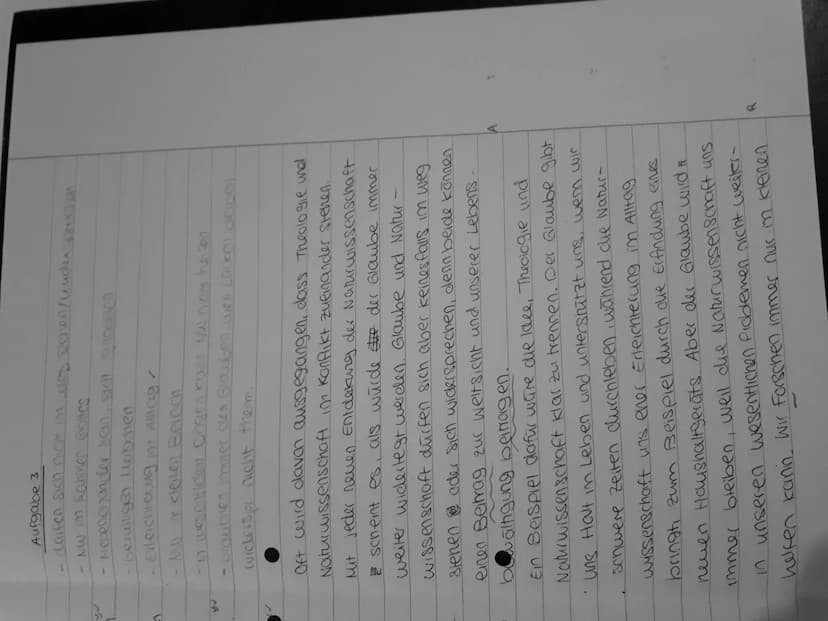 Aufgabe 3
- dürfen sich nicht im weg stehen/
- Nur im kleinen
- sein, sich
-
- Erleichterung im Alltag ✓
- Nur in kleinen
- in wesentlichen nicht helfen
- immer der Glaube
widerspr. nicht them.
Oft wird davon ausgegangen, dass Theologie und
Naturwissenschaft im Konflikt zueinander stehen.
Mit jeder neuen Entdekung der Naturwissenschaft
scheint es, als würde der Glaube immer
weiter widerlegt werden. Glaube und Natur-
wissenschaft dürfen sich aber keinesfalls im weg
stehen oder sich widersprechen, denn beide können
einen Beitrag zur weltsicht und unserer Lebens- A
bewältigung beitragen.
Ein Beispiel dafür wäre die Idee, Theologie und
Naturwissenschaft klar zu trennen. Der Glaube gibt
uns Halt im Leben und unterstützt uns, wenn wir
schwere Zeiten durchleben, während die Natur-
wissenschaft uns einer Erleichterung im Alltag
bringt, zum Beispiel durch die Erfindung eines
neuen Haushaltgeräts. Aber der Glaube wird
immer bleiben, weil die Naturwissenschaft uns
in unseren wesentlichen Problemen nicht weiter- R
helfen kann. Wir Forschen immer nur im kleinen